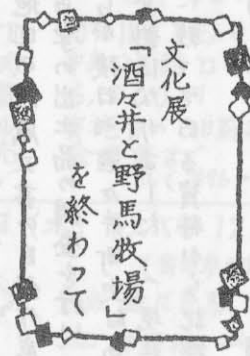 文化展
「酒々井と野馬牧場」
を終わって